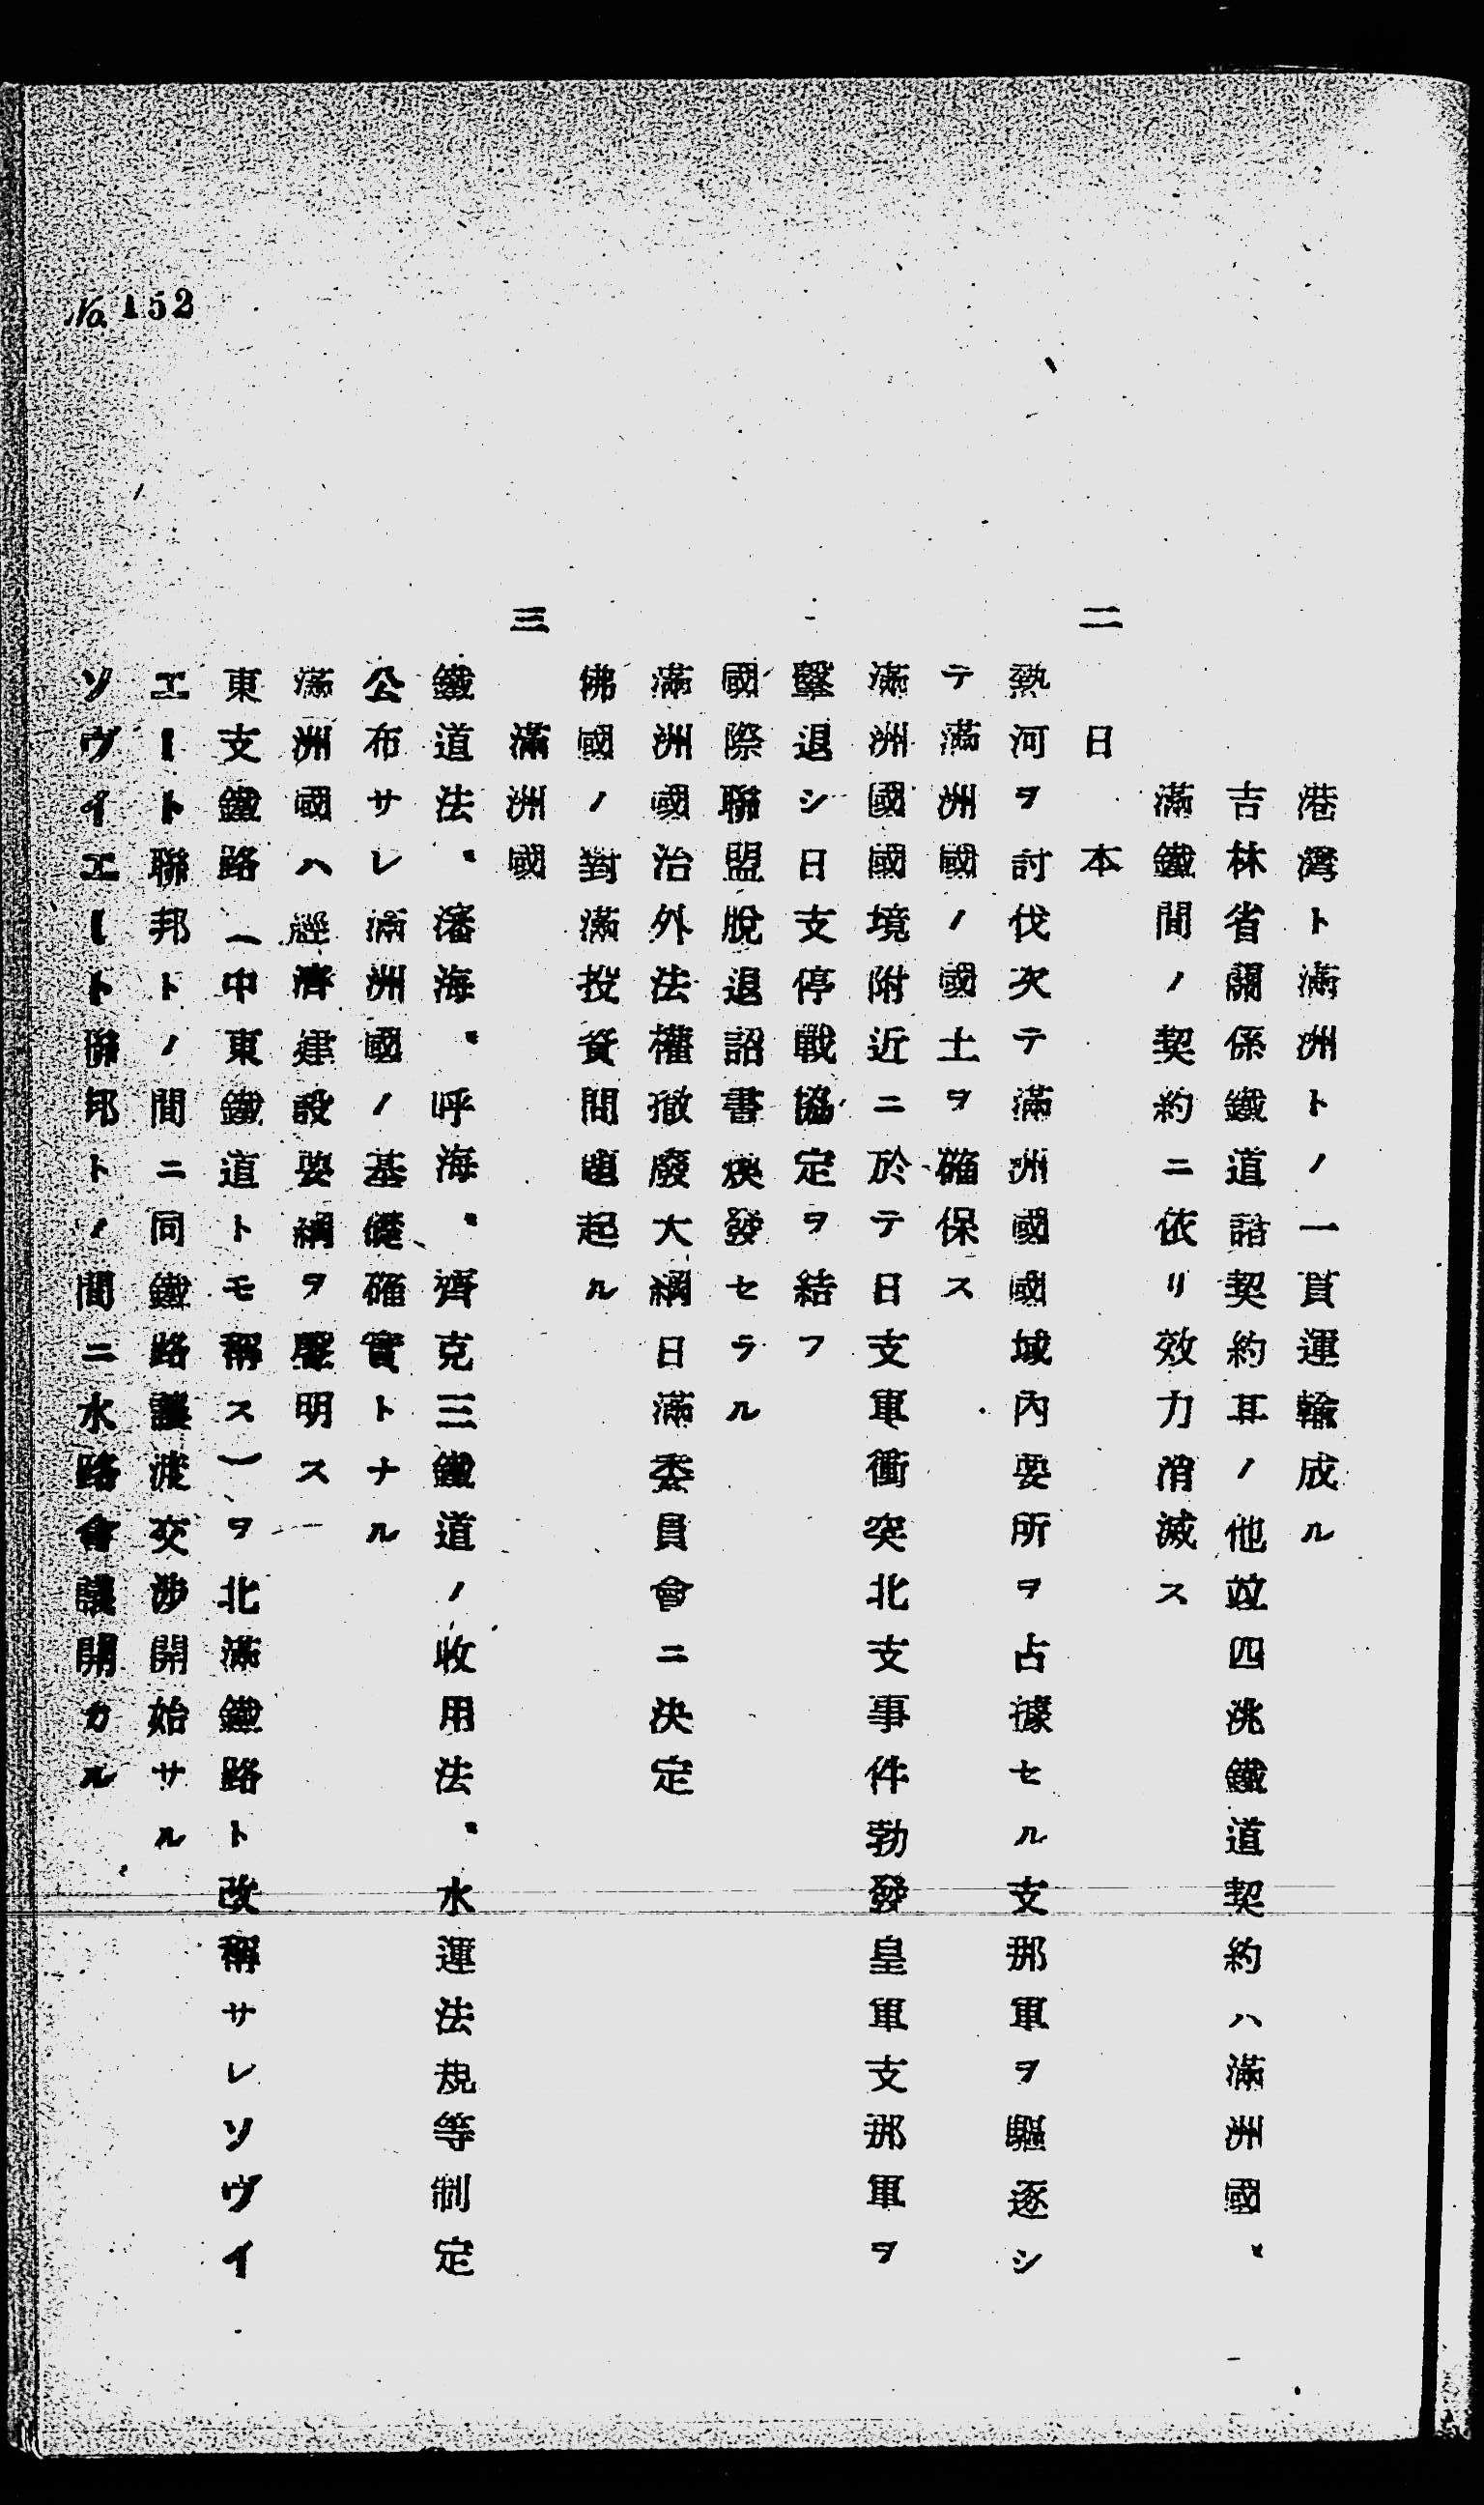 No. 152
港灣ト滿洲トノ一貫運輸成ル
吉林省關係鐵道諸契約其ノ他竝四洮鐵道契約ハ滿洲國、
滿鐵間ノ契約ニ依リ效力消滅ス
二 日本
熱河ヲ討伐次テ滿洲國國域內要所ヲ占據セル支那軍ヲ驅逐シ
テ滿洲國ノ國土ヲ確保ス
滿洲國國境附近ニ於テ日支軍衝突北支事件勃發皇軍支那軍ヲ
擊退シ日支停戰協定ヲ結フ
國際聯盟脫退詔書渙發セラル
滿洲國治外法權撤廢大綱日滿委員會ニ決定
佛國ノ對滿投資問題起ル
三 滿洲國
鐵道法、瀋海、呼海、齊克三鐵道ノ收用法、水運法規等制定
公布サレ滿洲國ノ基礎確實トナル
滿洲國ハ經濟建設要綱ヲ聲明ス
東支鐵路(中東鐵道トモ稱ス)ヲ北滿鐵路ト改稱サレソヴイ
エート聯邦トノ間ニ同鐵路讓渡交涉開始サル
ソヴイエート聯邦トノ間ニ水路會議開カル